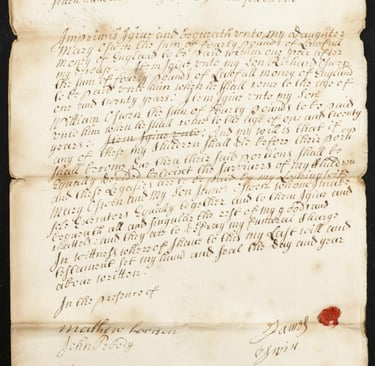 Imprimis I give and bequeath unto my daughter
Mary Oswin the sum of fourty pounds of Lawfull
money of England to be paid within one year after
my decease Item I give unto my son Richard Oswin
the sum of fourty pounds of Lawfull money of England
to be paid unto him when he shall come to the age of
one and twenty years: Item I give unto my son
William Oswin the sum of fourty pounds to be paid
unto him when he shall come to the age of one and twenty
years: Item I give unto: And my will is that if
any of these my Children shall die before their
shall become due then their said portions shall be
Equally divided betwixt the survivors of my Children
and these Legasies are to be paid by my Loving wife
Mary Oswin and my son James Oswin whome I make
sole Executors Equally together and to them I give and
bequeath all and singular the rest of my goods and
Chattels: and they are to defray my funeral Charge
In wittness whereof I have to this my Last will and
Testament set my hand and seal the day and year
above written.
In the presence of
Mathew
John
James
Oswin